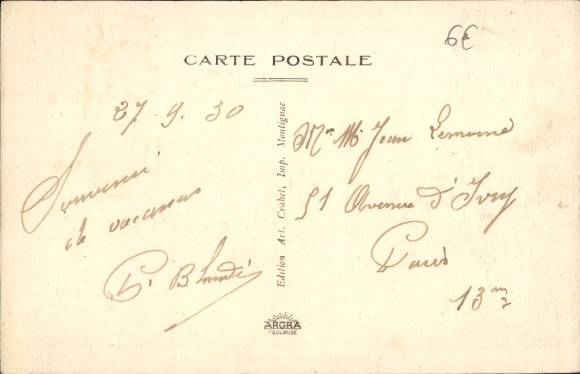 6€
CARTE POSTALE
27 9. 30
Souvenir
de vacances
Edition Art. Crahet, Imp. Montignac
Mr Me Jean Lemoine
51 Avenue d'Ivry
Paris
13me
ARGRA
TOULOUSE